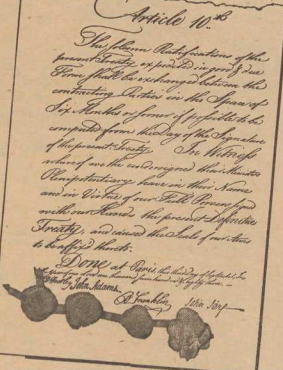 Article 10.th
The solemn Ratifications of the
present Treaty expedited in good & due
Form shall be exchanged between the
contracting Parties in the Space of
Six Months or sooner if possible to be
computed from the Day of the Signature
of the present Treaty. In Witness
whereof we the undersigned their Ministers
Plenipotentiary have in their Name
and in Virtue of our Full Powers signed
with our Hands the present Definitive
Treaty, and caused the Seals of our Arms
to be affix'd thereto.
Done at Paris, this third day of September, In
the year of our Lord one thousand seven hundred & eighty three.
John Adams
B Franklin
John Jay